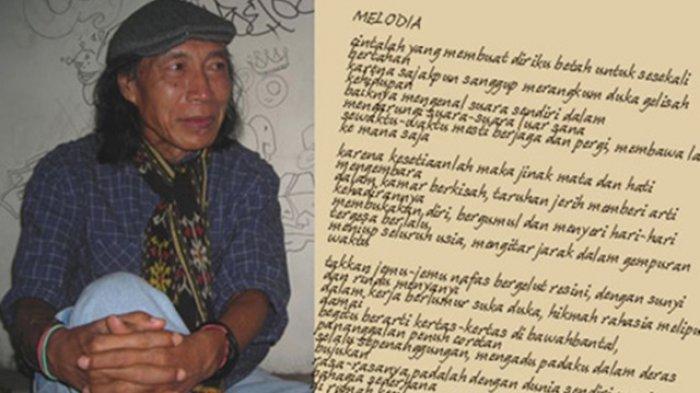 MELODIA
cintalah yang membuat diriku betah untuk sesekali
bertahan
karena sajakpun sanggup merangkum duka gelisah
kehidupan
baiknya mengenal suara sendiri dalam
mengarungi suara-suara luar sana
sewaktu-waktu mesti berjaga dan pergi, membawa la
ke mana saja
karena kesetiaanlah maka jinak mata dan hati
mengembara
dalam kamar berkisah, taruhan jerih memberi arti
kehadirannya
membukakan diri, bergumul dan menyeri hari-hari
tergesa berlalu,
meniup seluruh usia, mengitar jarak dalam gempuran
waktu
takkan jemu-jemu nafas bergelut resini, dengan sunyi
dan rindu menyanyi
dalam kerja berlumur suka duka, hikmah rahasia melipu
damai
begitu berarti kertas-kertas di bawahbantal,
pananggalan penuh coretan
selalu sepenanggungan, mengadu padaku dalam deras
bujukan
rasa-rasanya padalah dengan dunia sendiri
bahagia sederhana
di rumah